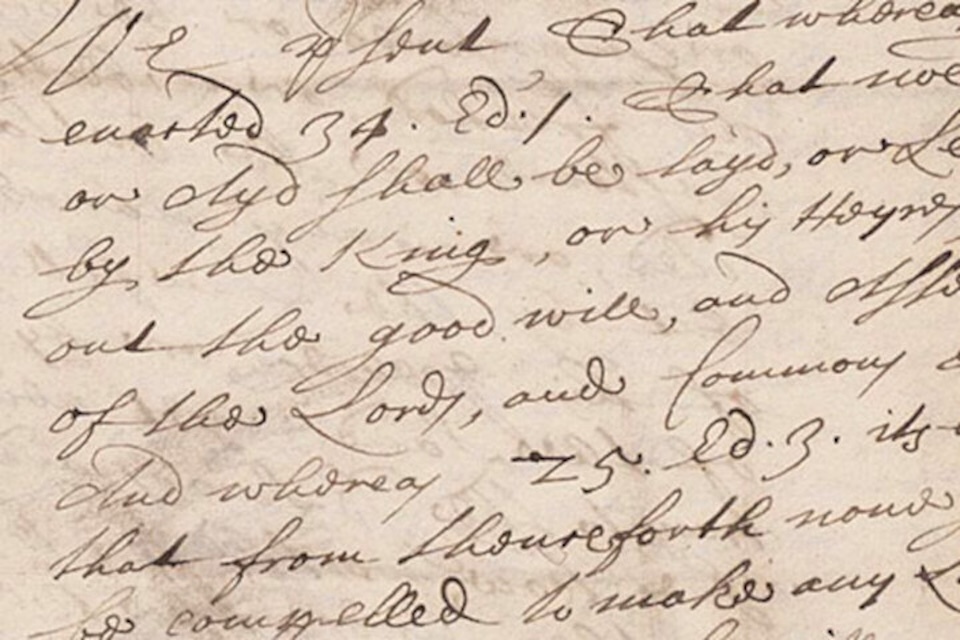 We psent That wherea
enacted 34. Ed. 1. That noe
or Ayd shall be layd, or Le
by the King, or his Heyres
out the good will, and Asse
of the Lords, and Commons
And whereas 25. Ed. 3. its
that from thenceforth none
be compelled to make any L